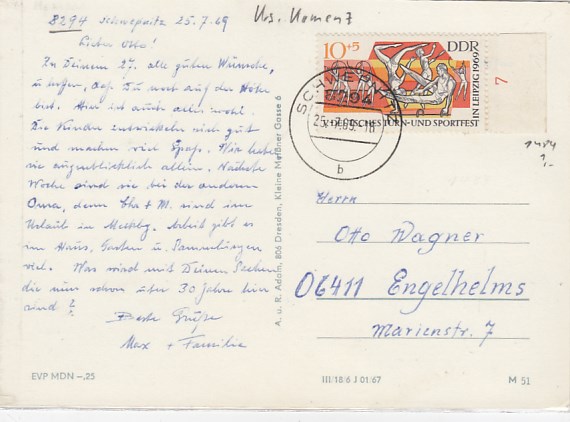 8294 Schwepnitz 25.7.69
Krs. Kamenz
Lieber Otto!
Zu Deinem 27. alle guten Wünsche,
u. hoffen, daß Du noch auf der Höhe
bist. Hier ist auch alles wohl.
Die Kinder entwickeln sich gut
und machen viel Spaß. Wir haben
sie augenblicklich allein. Nächste
Woche sind sie bei der anderen
Oma, denn Chr + M. sind im
Urlaub in Mecklbg. Arbeit gibt es
im Haus, Garten u. Sammlungen
viel. Was wird mit Deinen Sachen
die nun schon über 30 Jahre hier
sind?
Beste Grüße
Max + Familie
EVP MDN –,25
A. u. R. Adam, 806 Dresden, Kleine Meßner Gasse 6
10+5 DDR
V. DEUTSCHES TURN- UND SPORTFEST
IN LEIPZIG 1969
7
SCHWEPNITZ
8294
25.-7.69.-18
b
1484
1,-
Herrn
Otto Wagner
06411 Engelhelms
Marienstr. 7
III/18/6 J 01/67
M 51